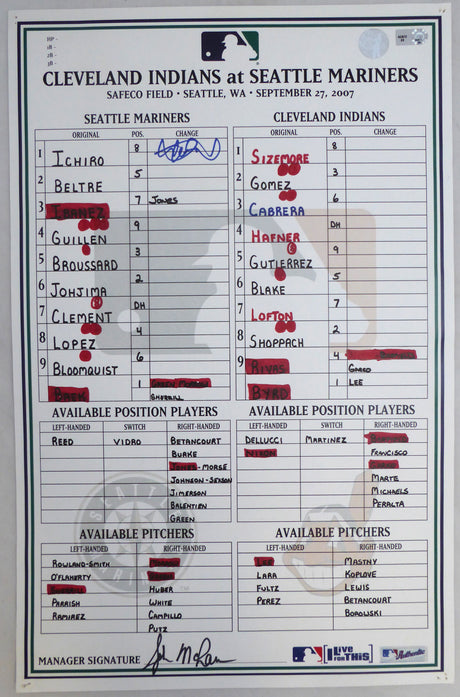 HP -
1B -
2B -
3B -
CLEVELAND INDIANS at SEATTLE MARINERS
SAFECO FIELD • SEATTLE, WA • SEPTEMBER 27, 2007
SEATTLE MARINERS
ORIGINAL POS. CHANGE
1 ICHIRO 8
2 BELTRE 5
3 IBANEZ 7 JONES
4 GUILLEN 9
5 BROUSSARD 3
6 JOHJIMA 2
7 CLEMENT DH
8 LOPEZ 4
9 BLOOMQUIST 6
BAEK 1 GREEN
SHERRILL
CLEVELAND INDIANS
ORIGINAL POS. CHANGE
1 SIZEMORE 8
2 GOMEZ 3
3 CABRERA 6
4 HAFNER DH
5 GUTIERREZ 9
6 BLAKE 5
7 LOFTON 7
8 SHOPPACH 2
9 RIVAS 4
BYRD 1 LEE
AVAILABLE POSITION PLAYERS
LEFT-HANDED SWITCH RIGHT-HANDED
REED VIDRO BETANCOURT
BURKE
JONES-MORSE
JOHNSON-SEXSON
JIMERSON
BALENTIEN
GREEN
AVAILABLE POSITION PLAYERS
LEFT-HANDED SWITCH RIGHT-HANDED
DELLUCCI MARTINEZ
NIXON FRANCISCO
MARTE
MICHAELS
PERALTA
AVAILABLE PITCHERS
LEFT-HANDED RIGHT-HANDED
ROWLAND-SMITH
O'FLAHERTY
HUBER
PARRISH WHITE
RAMIREZ CAMPILLO
PUTZ
AVAILABLE PITCHERS
LEFT-HANDED RIGHT-HANDED
LEE MASTNY
LARA KOPLOVE
FULTZ LEWIS
PEREZ BETANCOURT
BOROWSKI
MANAGER SIGNATURE John McLaren
I Live for This!
Authentic